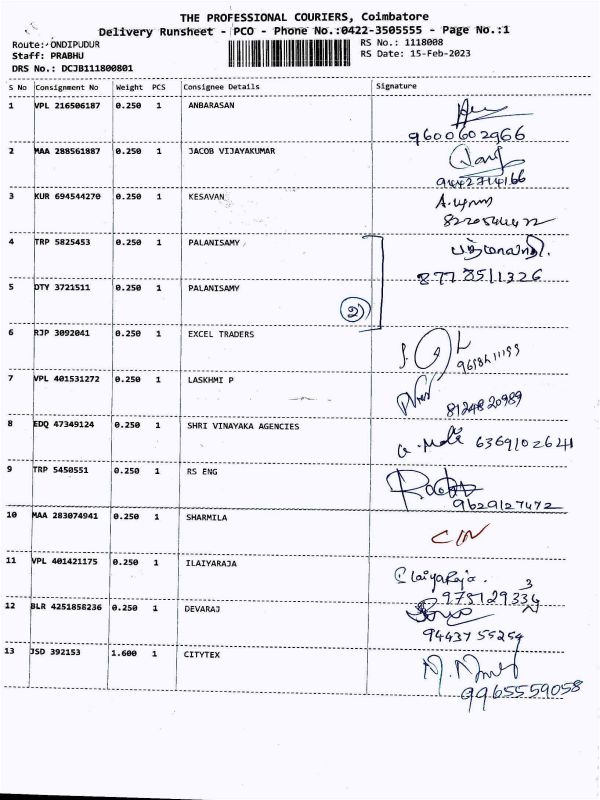 THE PROFESSIONAL COURIERS, Coimbatore
Delivery Runsheet - PCO - Phone No.:0422-3505555 - Page No.:1
Route: ONDIPUDUR RS No.: 1118008
Staff: PRABHU RS Date: 15-Feb-2023
DRS No.: DCJB111800801
S No Consignment No Weight PCS Consignee Details Signature
1 VPL 216506187 0.250 1 ANBARASAN
9600602966
2 MAA 288561887 0.250 1 JACOB VIJAYAKUMAR
9442714166
3 KUR 694544270 0.250 1 KESAVAN
4 TRP 5825453 0.250 1 PALANISAMY
8778511326
5 OTY 3721511 0.250 1 PALANISAMY
2
6 RJP 3092041 0.250 1 EXCEL TRADERS
7 VPL 401531272 0.250 1 LASKHMI P
8124820989
8 EDQ 47349124 0.250 1 SHRI VINAYAKA AGENCIES
6369102641
9 TRP 5450551 0.250 1 RS ENG
9629127472
10 MAA 283074941 0.250 1 SHARMILA
CIN
11 VPL 401421175 0.250 1 ILAIYARAJA
IlaiyaRaja.
12 BLR 4251858236 0.250 1 DEVARAJ
9443755254
13 JSD 392153 1.600 1 CITYTEX
9965559058